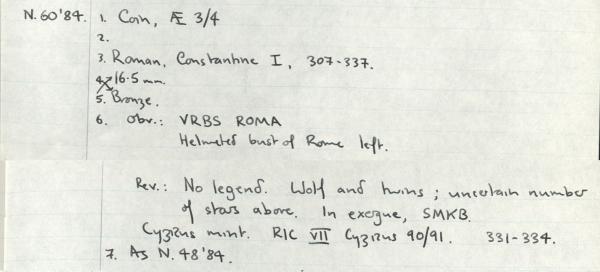 N.60'84. 1. Coin, Æ 3/4
2.
3. Roman, Constantine I, 307-337.
4. 16.5 mm.
5. Bronze.
6. Obv.: VRBS ROMA
Helmeted bust of Rome left.
Rev.: No legend. Wolf and twins; uncertain number
of stars above. In exergue, SMKB.
Cyzizus mint. RIC VII Cyzizus 90/91. 331-334.
7. As N.48'84.